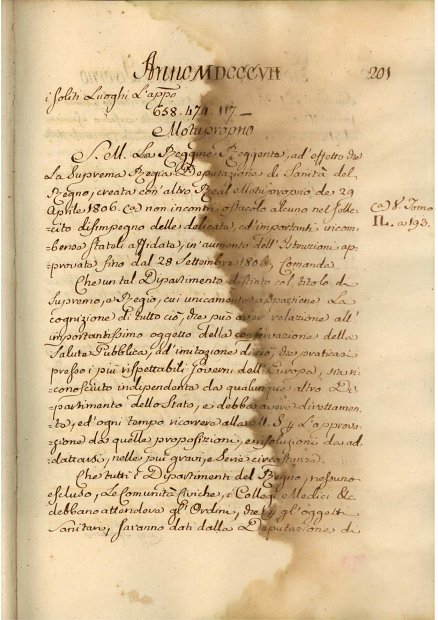 Anno MDCCCVII 201
i soliti Luoghi L'appo
658.474.117._
Motuproprio
S. M. La Reggina Reggente, ad'effetto che
La Suprema Regia Deputazione di Sanità del
Regno, creata con'altro Real Motuproprio de 29
Aprile 1806. (a) non incontri ostacolo alcuno nel solle-
cito disimpegno delle delicate, ed importanti incom-
benze stateli affidate, in'aumento dell'Istruzioni ap-
provate sino dal 28 Settembre 1806, Comanda.
(a) V. Tomo
II. a 193.
Che un tal Dipartimento distinto col titolo di
Supremo, e Regio, cui unicamente appartiene La
cognizione di tutto ciò, che può aver relazione all'
importantissimo oggetto della conservazione della
Salute Pubblica, ad'imitazione di ciò, che praticasi
presso i più rispettabili Governi dell'Europa, sia ri-
conosciuto indipendente da qualunque altro Di-
partimento dello Stato, e debba avere direttamen-
te, ed'ogni tempo ricorrere alla M. S. l'approva-
zione da quelle proposizioni, e risoluzioni da ad-
dattarsi, nelle più gravi, e serie circostanze.
Che tutti i Dipartimenti del Regno, nessuno
escluso, Le Comunità Civiche, i Collegi Medici &c
debbano attendere gl'Ordini, che gl'oggetti
Sanitari, saranno dati dalla Deputazione di